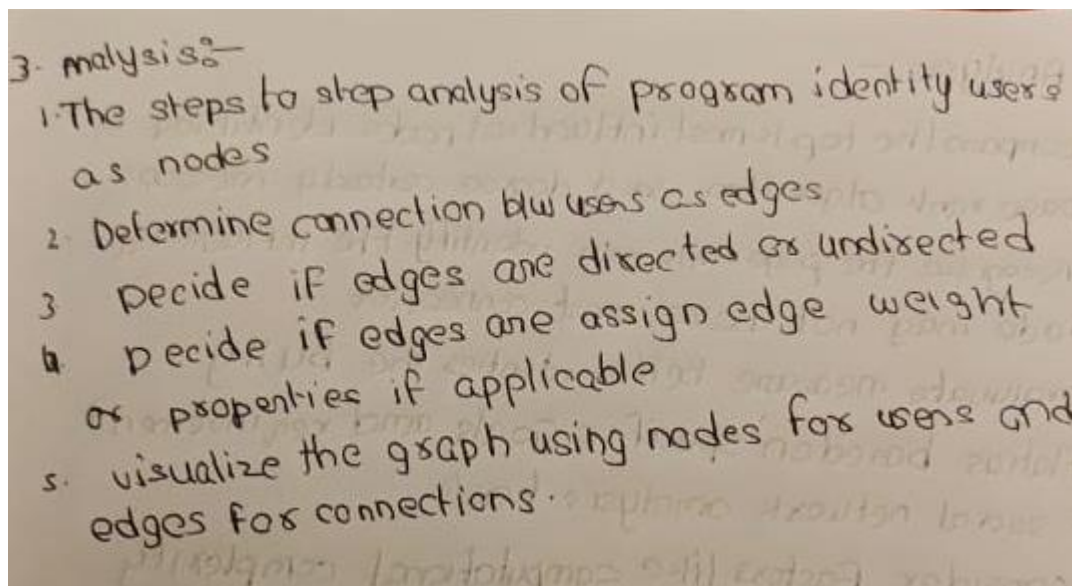 3. Analysis:-
1. The steps to step analysis of program identity users
as nodes
2. Determine connection b/w users as edges
3 Decide if edges are directed or undirected
4. Decide if edges are assign edge weight
or properties if applicable
5. visualize the graph using nodes for users and
edges for connections.